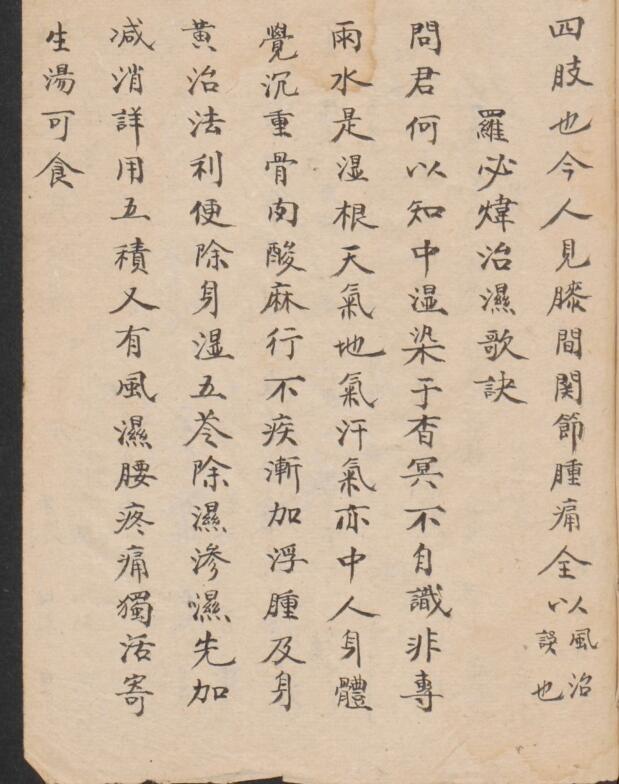 四肢也今人見膝間関節腫痛全以風治誤也
羅必煒治濕歌訣
問君何以知中湿染于杳冥不自識非專
雨水是湿根天氣地氣汗氣亦中人身體
覺沉重骨肉酸麻行不疾漸加浮腫及身
黃治法利便除身湿五苓除濕滲濕先加
减消詳用五積又有風濕腰疼痛獨活寄
生湯可食